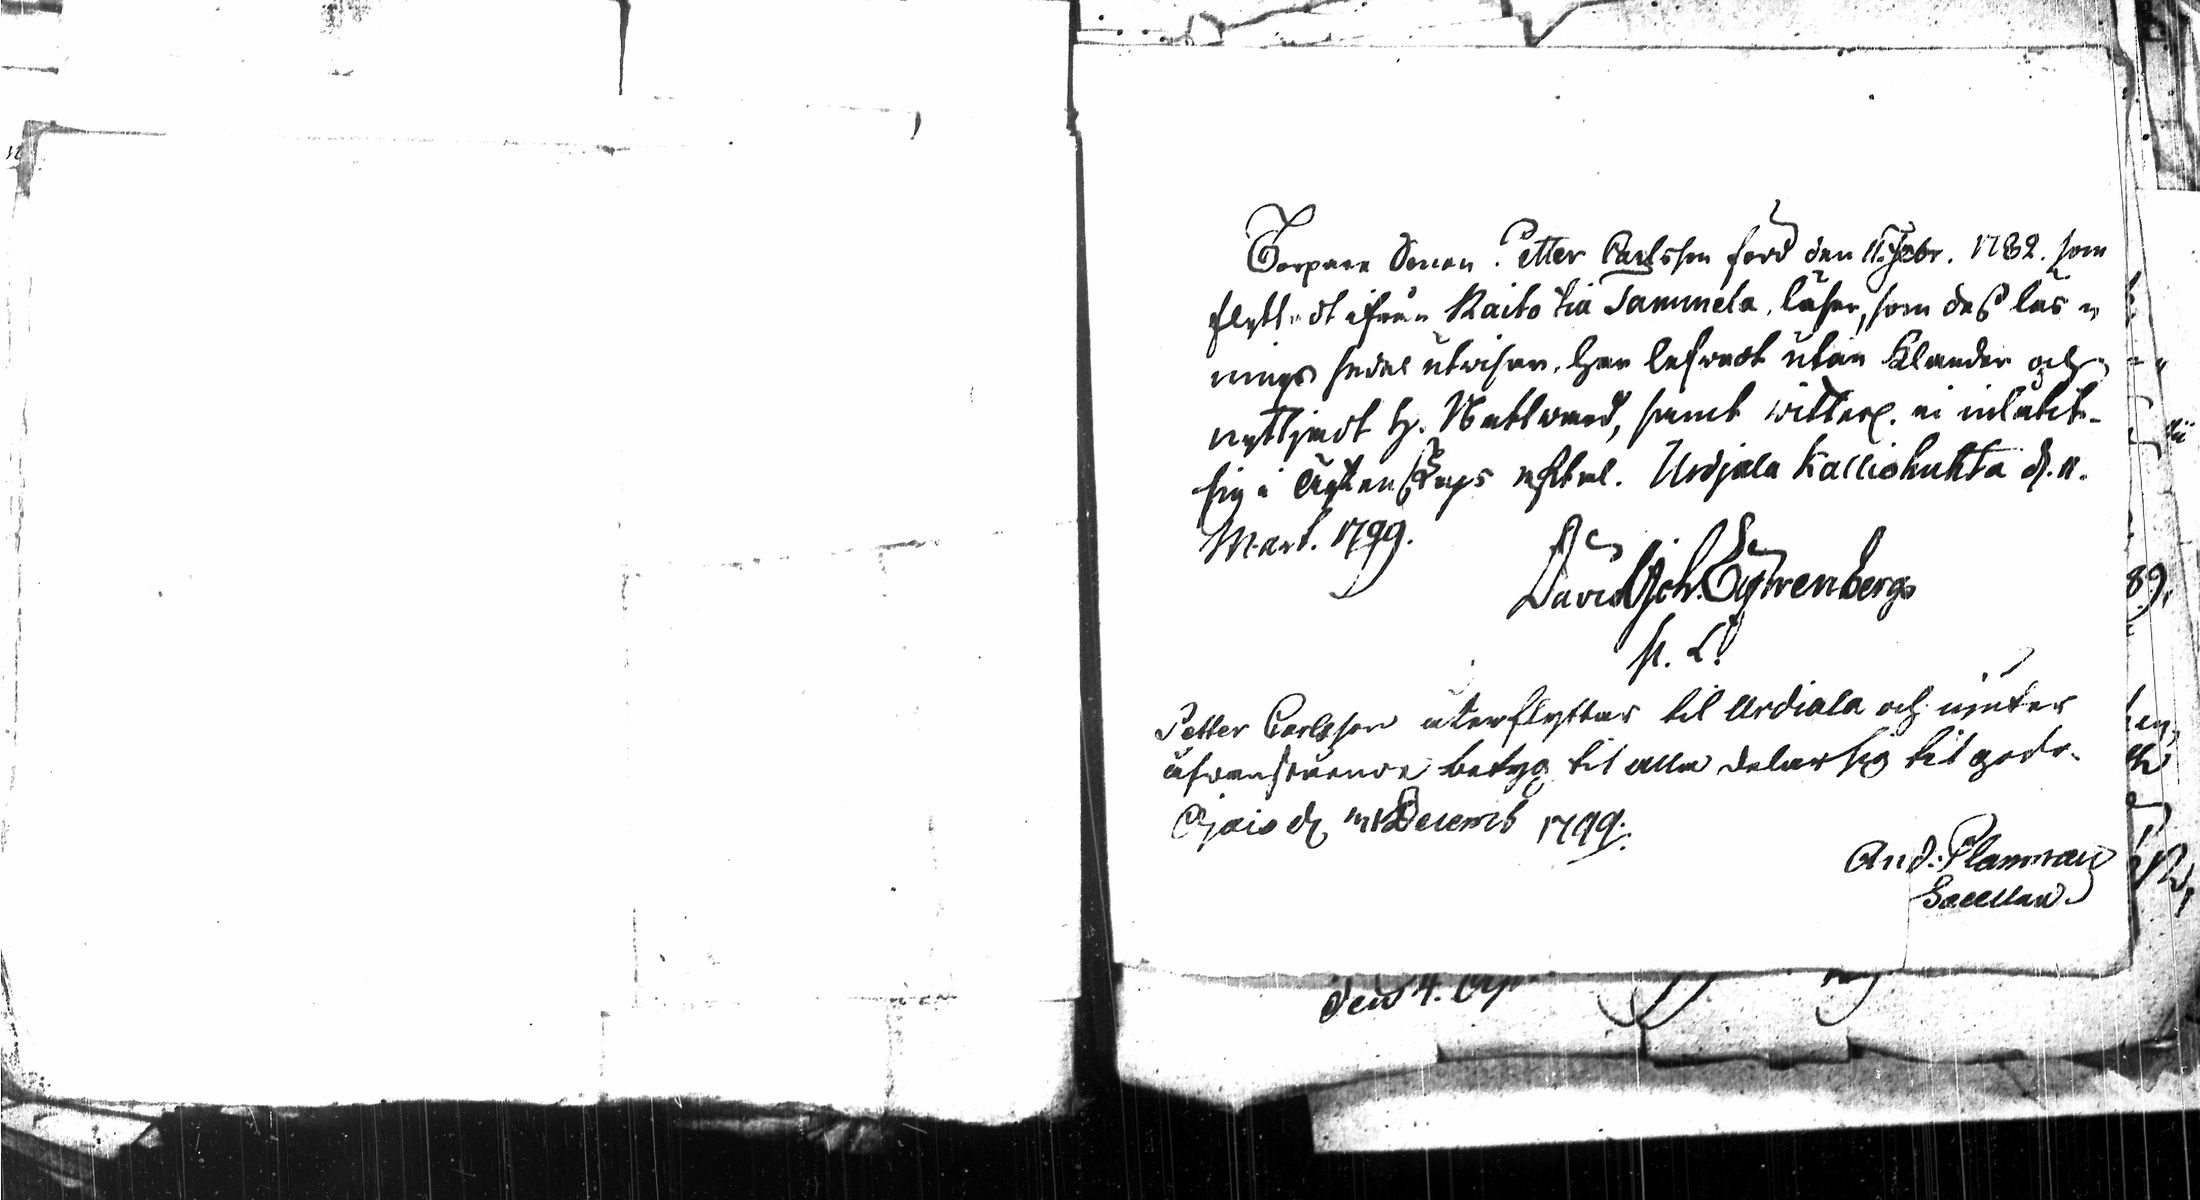 Torpare Sonen Petter Carlsson född den 11. Febr. 1782. som
flyttadt ifrån Kaito til Tammela, läser, som dess läs-
nings sedel utwisar, har lefwadt utan klander och
nyttjadt h. Nattward, samt witterl. ei inlåtit
sig i Ägtenskaps  Urdjala Kalliohuhta d. 11.
Mart. 1799.
David Joh. Ehrenberg
Petter Carlsson återflyttar til Urdiala och niuter
ofwanstående betyg til alla delar sig til godo.
d. Decemb 1799.
And. Planman
Sacellan.
den 4.
89.